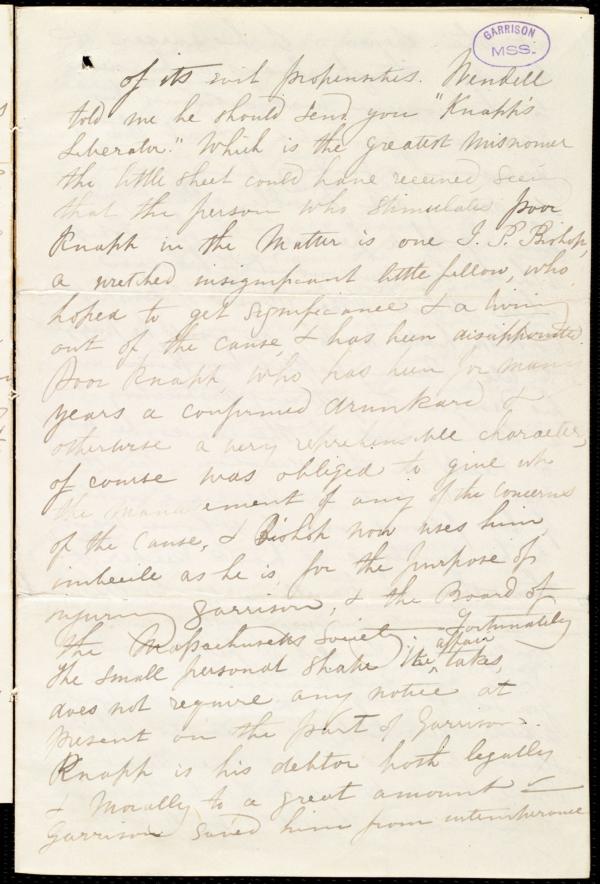 GARRISON
MSS.
of its evil propensities. Wendell
told me he should send you "Knapp's
Liberator." Which is the greatest misnomer
the little sheet could have received, seeing
that the person who stimulates poor
Knapp in the matter is one J. P. Bishop,
a wretched insignificant little fellow, who
hoped to get significance & a living
out of the cause, & has been disappointed.
Poor Knapp, who has been for many
years a confirmed drunkard &
otherwise a very reprehensible character,
of course was obliged to give up
the management of any of the concerns
of the Cause, & Bishop now uses him
imbecile as he is, for the purpose of
injuring Garrison, & the Board of
the Massachusetts Society. Fortunately
the small personal shape the affair takes,
does not require any notice at
present on the part of Garrison.
Knapp is his debtor both legally
& morally to a great amount —
Garrison saved him from intemperance